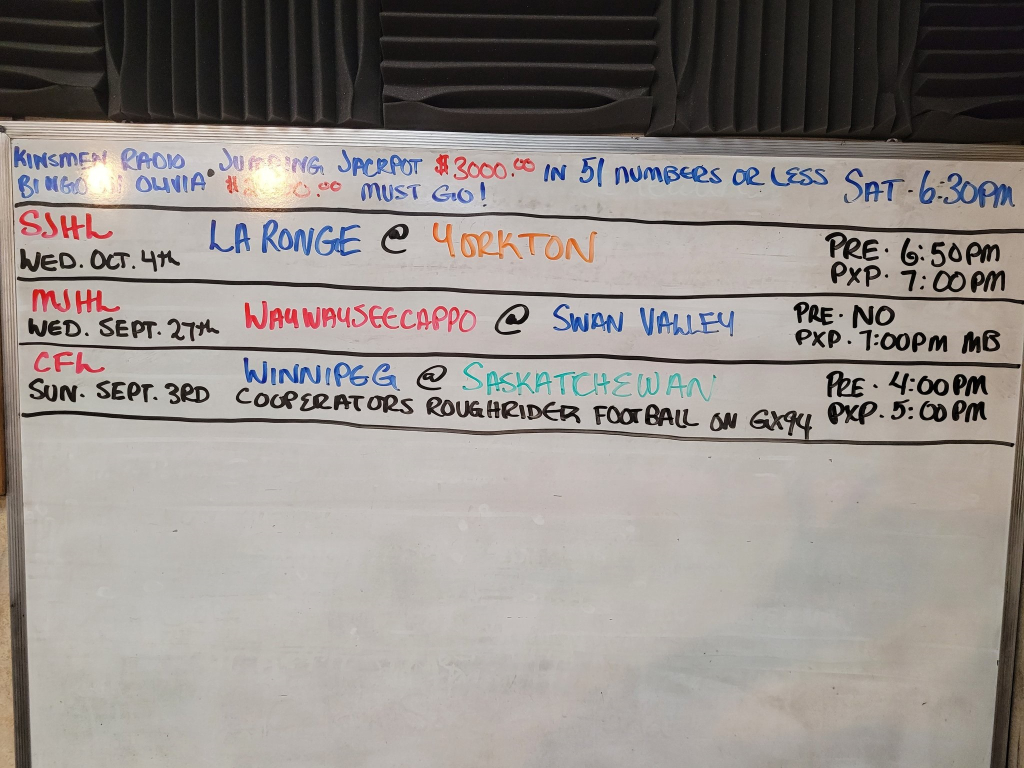 KINSMEN RADIO · JUMPING JACKPOT $3000.00 IN 51 NUMBERS OR LESS SAT · 6:30PM
BINGO OLIVIA · MUST GO!
SJHL LA RONGE @ YORKTON PRE · 6:50PM
WED. OCT. 4th PXP. 7:00PM
MJHL WAYWAYSEECAPPO @ SWAN VALLEY PRE · NO
WED. SEPT. 27th PXP. 7:00PM MB
CFL WINNIPEG @ SASKATCHEWAN PRE · 4:00PM
SUN. SEPT. 3RD COOPERATORS ROUGHRIDER FOOTBALL ON GX94 PXP. 5:00PM